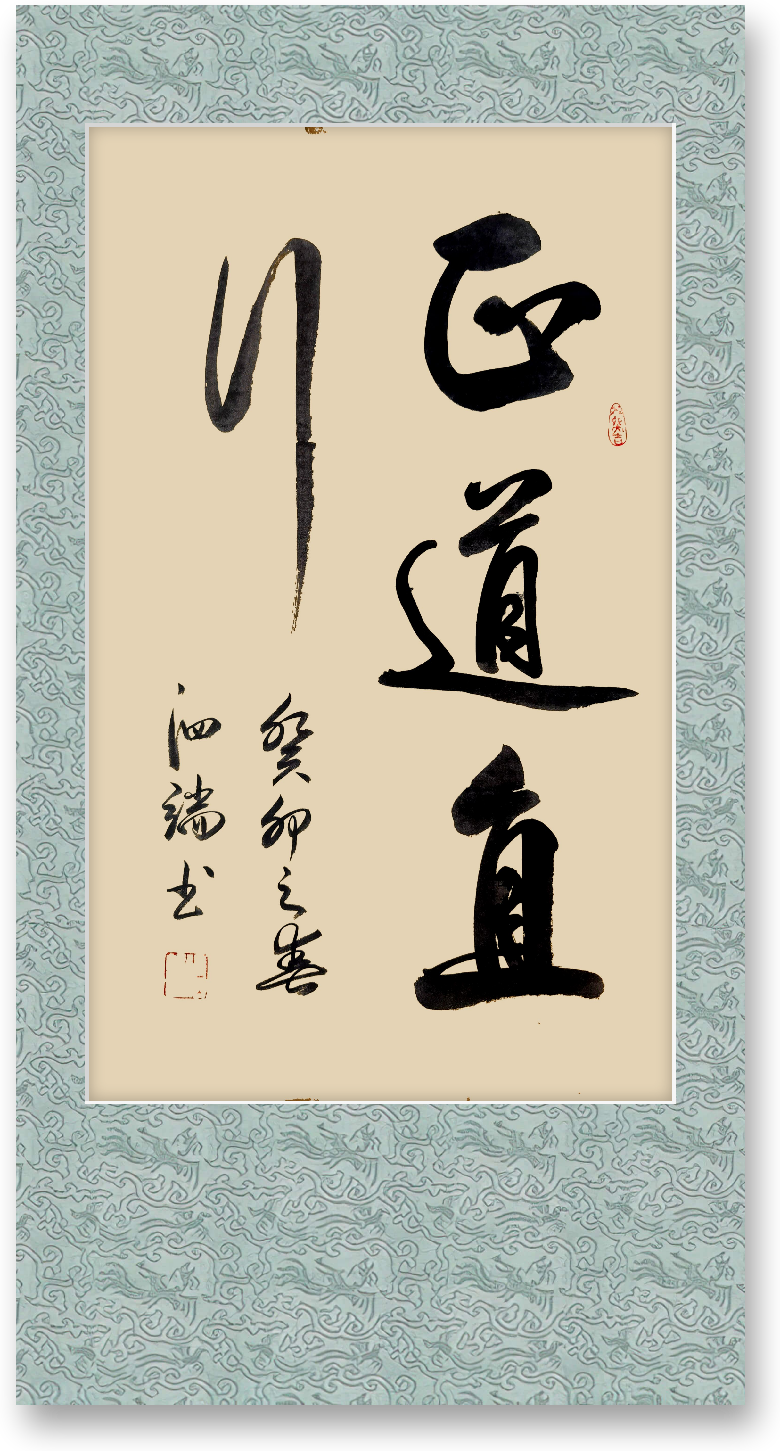 正道直
行
癸卯之春
泗端书